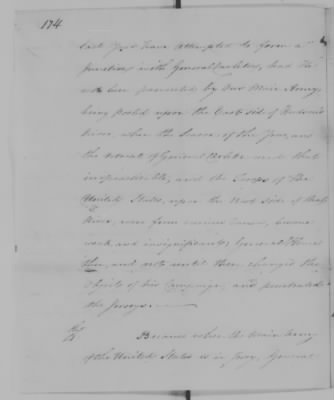 174
last year have attempted to form a
junction with General Carleton, had He
not been prevented by our Main Army
being posted upon the East side of Hudson's
River, when the Season of the year, and
the retreat of General Carleton made that
impracticable, and the Troops of The
United States, upon the West side of that
River, were from various causes, become
weak and insignificant; General Howe
then, and not until then changed the
Objects of his Campaign, and penetrated
the Jerseys.
Because when the Main Army
of the United States is in Jersey, General